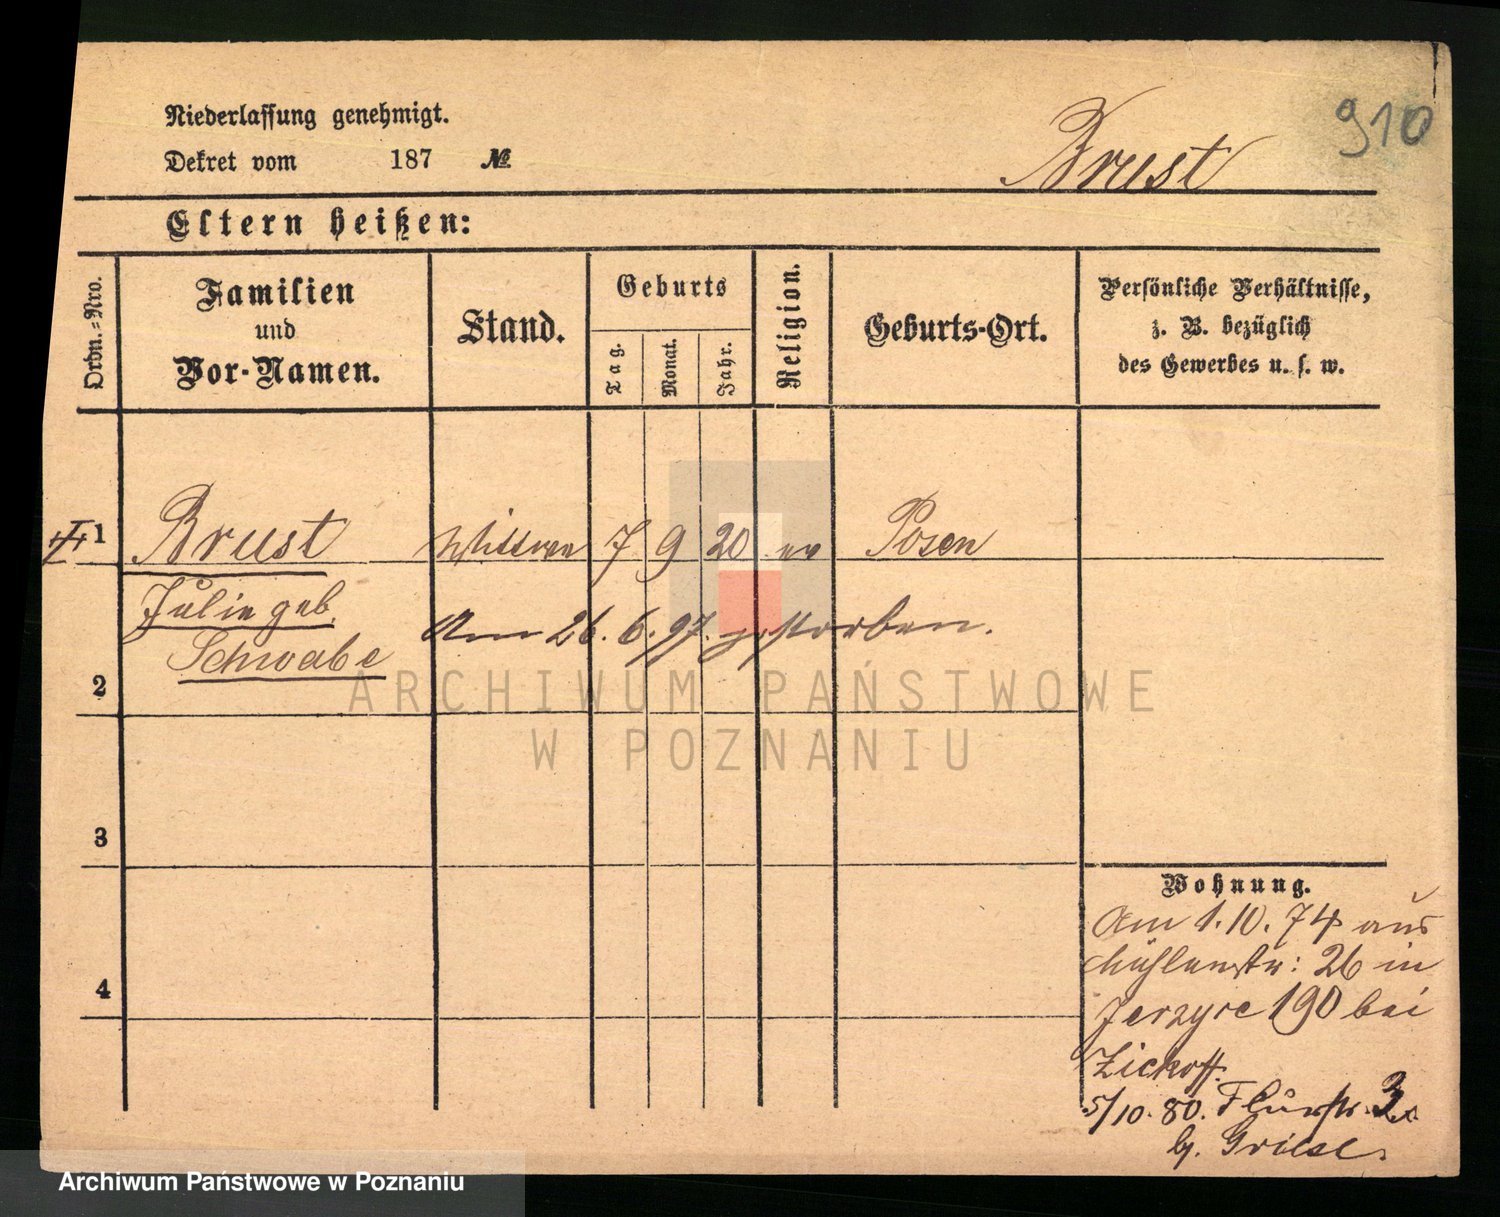 910
Niederlassung genehmigt.
Dekret vom 187 №
Brust
Eltern heißen:
Ordn.=Nro.
Familien
und
Vor-Namen.
Stand.
Geburts
Tag.
Monat.
Jahr.
Religion.
Geburts-Ort.
Persönliche Verhältnisse,
z. B. bezüglich
des Gewerbes u. s. w.
1 Brust Wittwe 7 9 20 ev Posen
Julie geb.
Am 26. 6. 97. gestorben.
Schwabe
2
ARCHIWUM PAŃSTWOWE
W POZNANIU
3
4
Wohnung.
Am 1. 10. 74 aus
Mühlenstr: 26 in
Jerzyce 190 bei
Zickoff.
5/10. 80. Flurstr. 3
b. Griese.
Archiwum Państwowe w Poznaniu